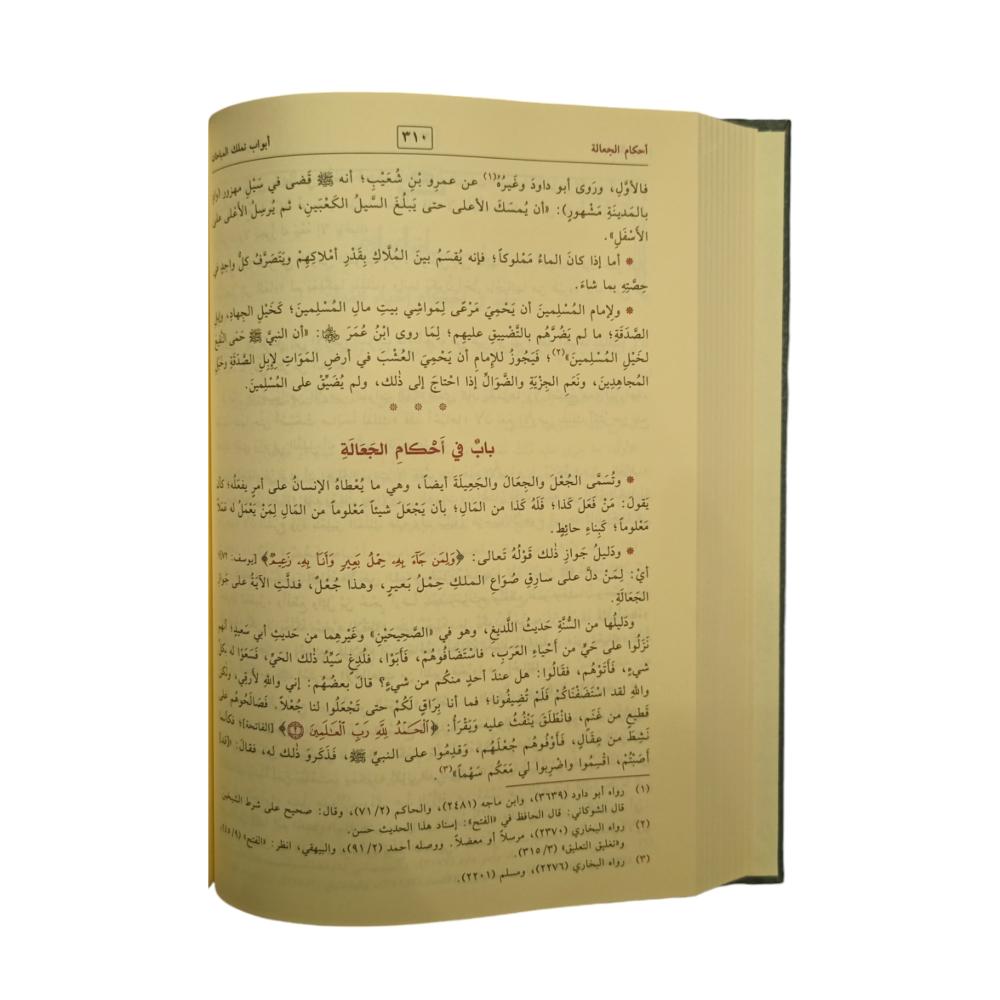 أحكام الجعالة
٣١٠
أبواب تملك المباحات
فالأوَّلِ، ورَوى أبو داودَ وغَيرُهُ(١) عن عمرِو بْنِ شُعَيْبٍ؛ أنه ﷺ قَضى في سَيْلِ مهزور (وادٍ
بالمَدينَةِ مَشْهورٍ): «أن يُمسَكَ الأعلى حتى يَبلُغَ السَّيلُ الكَعْبَينِ، ثم يُرسِلُ الأَعْلى على
الأَسْفَلِ».
* أما إذا كانَ الماءُ مَمْلوكاً؛ فإنه يُقسَمُ بينَ المُلَّاكِ بِقَدْرِ أمْلاكِهِمْ ويَتَصَرَّفُ كلُّ واحِدٍ في
حِصَّتِهِ بما شاءَ.
* ولإمام المُسْلِمينَ أن يَحْمِيَ مَرْعًى لِمَواشِي بيتِ مالِ المُسْلِمينَ؛ كَخَيْلِ الجِهادِ، وإبلِ
الصَّدَقَةِ؛ ما لم يَضُرَّهُم بالتَّضْييقِ عليهِم؛ لِمَا روى ابْنُ عُمَرَ ﵄: «أن النبيَّ ﷺ حَمَى النَّقيعَ
لخَيْلِ المُسْلِمينَ»(٢)؛ فَيَجُوزُ للإمامِ أن يَحْمِيَ العُشْبَ في أرضِ المَوَاتِ لإبِلِ الصَّدَقَةِ وخَيْلِ
المُجاهِدِينَ، ونَعَمِ الجِزْيَةِ والضَّوَالِّ إذا احْتاجَ إلى ذٰلك، ولم يُضَيِّقْ على المُسْلِمِينَ.
* * *
بابٌ في أَحْكامِ الجَعَالَةِ
* وتُسَمَّى الجُعْلَ والجِعَالَ والجَعِيلَةَ أيضاً، وهي ما يُعْطاهُ الإنسانُ على أمرٍ يفعَلُه؛ كأن
يَقولَ: مَنْ فَعَلَ كَذا؛ فَلَهُ كَذا من المَالِ؛ بأن يَجْعَلَ شيئاً مَعْلوماً من المَالِ لِمَنْ يَعْمَلُ له عَمَلاً
مَعْلوماً؛ كَبِناءِ حائِطٍ.
* ودَليلُ جَوازِ ذٰلك قَوْلُهُ تَعالى: ﴿وَلِمَن جَآءَ بِهِۦ حِمْلُ بَعِيرٍ وَأَنَا۠ بِهِۦ زَعِيمٌ﴾ [يوسف: ٧٢]؛
أيْ: لِمَنْ دلَّ على سارِقِ صُوَاعِ الملكِ حِمْلُ بَعيرٍ، وهذا جُعْلٌ، فدلَّتِ الآيَةُ على جَوازِ
الجَعَالَةِ.
ودَليلُها من السُّنَّةِ حَديثُ اللَّديغِ، وهو في «الصَّحِيحَيْنِ» وغَيْرِهِما من حَديثِ أبي سَعيدٍ؛ أنهم
نَزَلُوا على حَيٍّ من أَحْياءِ العَرَبِ، فاسْتَضافُوهُمْ، فَأَبَوْا، فَلُدِغَ سَيِّدُ ذٰلك الحَيِّ، فَسَعَوْا له بكلِّ
شَيءٍ، فَأَتَوْهُم، فَقالُوا: هل عندَ أحدٍ منكُم من شَيءٍ؟ قالَ بَعضُهُم: إني واللهِ لأَرقِي، ولكن
واللهِ لقد اسْتَضَفْنَاكُمْ فَلَمْ تُضِيفُونا؛ فما أنا بِرَاقٍ لَكُمْ حتى تَجْعَلُوا لنا جُعْلاً. فَصَالَحُوهُم على
قَطيعٍ من غَنَمٍ، فانْطَلَقَ يَنْفُثُ عليه ويَقْرَأُ: ﴿ٱلْحَمْدُ لِلَّهِ رَبِّ ٱلْعَٰلَمِينَ ٢﴾ [الفاتحة]؛ فكأنما
نَشِطَ من عِقَالٍ، فَأَوْفُوهُم جُعْلَهُم، وقَدِمُوا على النبيِّ ﷺ، فَذَكَرو ذٰلك له، فقالَ: «قد
أَصَبْتُمْ، اقْسِمُوا واضْرِبوا لي مَعَكُم سَهْماً»(٣).
(١) رواه أبو داود (٣٦٣٩)، وابن ماجه (٢٤٨١)، والحاكم (٧١/٢)، وقال: صحيح على شرط الشيخين
قال الشوكاني: قال الحافظ في «الفتح»: إسناد هذا الحديث حسن.
(٢) رواه البخاري (٢٣٧٠)، مرسلاً أو معضلاً. ووصله أحمد (٩١/٢)، والبيهقي، انظر: «الفتح» (٤٥/٥)
و«تغليق التعليق» (٣١٥/٣).
(٣) رواه البخاري (٢٢٧٦)، ومسلم (٢٢٠١).